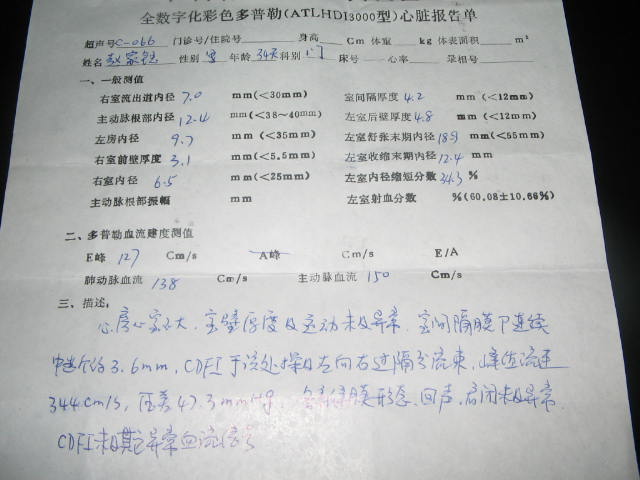 全数字化彩色多普勒(ATLHDI3000型)心脏报告单
超声号C-066 门诊号/住院号 身高 Cm 体重 kg 体表面积 m²
姓名 性别 男 年龄 34天 科别 门 床号 心率 录相号
一、一般测值
右室流出道内径 7.0 mm(<30mm) 室间隔厚度 4.2 mm (<12mm)
主动脉根部内径 12.4 mm(<38~40mm) 左室后壁厚度 4.8 mm (<12mm)
左房内径 9.7 mm(<35mm) 左室舒张末期内径 18.9 mm(<55mm)
右室前壁厚度 3.1 mm(<5.5mm) 左室收缩末期内径 12.4 mm
右室内径 6.5 mm(<25mm) 左室内径缩短分数 34.3 %
主动脉根部振幅 mm 左室射血分数 %(60.08±10.66%)
二、多普勒血流速度测值
E峰 127 Cm/s A峰 Cm/s E/A
肺动脉血流 138 Cm/s 主动脉血流 150 Cm/s
三、描述:
心房心室不大，室壁厚度及运动未见异常，室间隔膜下连续
中断约3.6mm，CDFI于该处探及左向右过隔分流束，峰值流速
344cm/s，压差47.3mmHg，各瓣膜形态、回声、启闭未见异常
CDFI未见异常血流信号